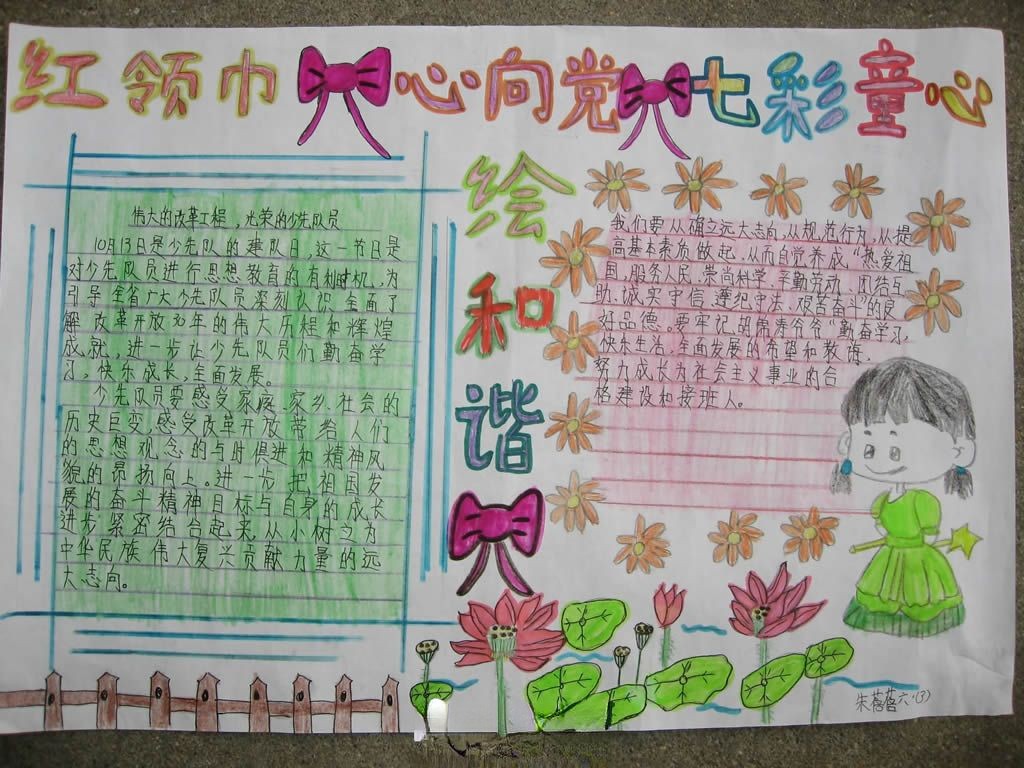 红领巾心向党七彩童心
绘和谐
伟大的改革工程，光荣的少先队员
10月13日是少先队的建队日，这一节日是
对少先队员进行思想教育的有利时机，为
引导全省广大少先队员深刻认识、全面了
解改革开放30年的伟大历程和辉煌
成就，进一步让少先队员们勤奋学
习，快乐成长，全面发展。
少先队员要感受家庭、家乡、社会的
历史巨变，感受改革开放带给人们
的思想观念的与时俱进和精神风
貌的昂扬向上。进一步把祖国发
展的奋斗精神目标与自身的成长
进步紧密结合起来，从小树立为
中华民族伟大复兴贡献力量的远
大志向。
我们要从确立远大志向，从规范行为，从提
高基本素质做起，从而自觉养成“热爱祖
国，服务人民，崇尚科学，辛勤劳动、团结互
助、诚实守信，遵纪守法、艰苦奋斗”的良
好品德。要牢记，胡锦涛爷爷“勤奋学习，
快乐生活，全面发展的希望和教诲，
努力成长为社会主义事业的合
格建设和接班人。
朱蓓蓓六·(3)